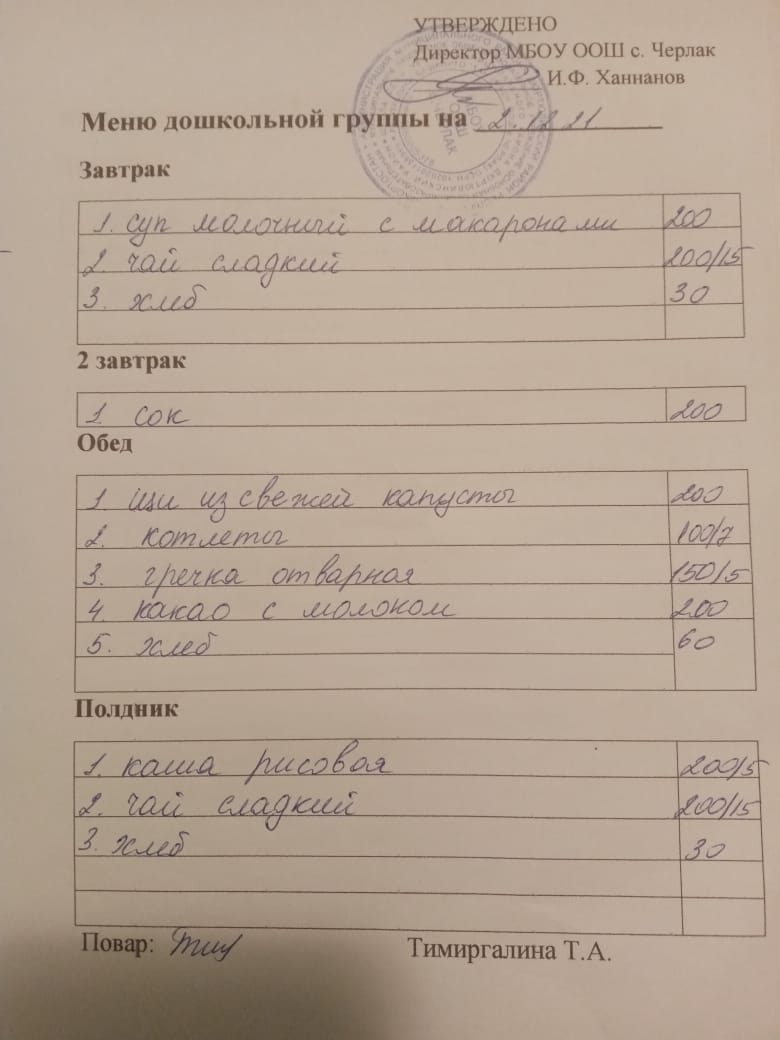 УТВЕРЖДЕНО
Директор МБОУ ООШ с. Черлак
И.Ф. Ханнанов
Меню дошкольной группы на 2.12.21
Завтрак
1. суп молочный с макаронами 200
2. чай сладкий 200/15
3. хлеб 30
2 завтрак
1. сок 200
Обед
1 щи из свежей капусты 200
2. котлеты 100/7
3. гречка отварная 150/5
4. какао с молоком 200
5. хлеб 60
Полдник
1. каша рисовая 200/5
2. чай сладкий 200/15
3. хлеб 30
Повар: Тимиргалина Т.А.